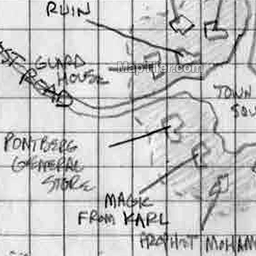 RUIN
GUARD
HOUSE
ST ROAD
MapTiler.com
TOWN
SQU
PONTBERG
GENERAL
STORE
MAGIC
FROM KARL
PROPHET MOHAM